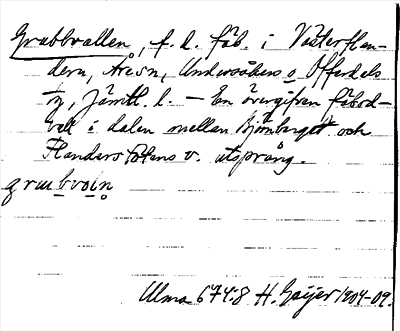 Grubbvallen, f. d. fäb. i Västerflan-
dern, Åresn, Undersåkers o. Offerdals
tg, Jämtl. l. — En övergifven fäbod-
vall i dalen mellan Björnberget och
Flanderstötens v. utsprång.
grubvoḷn
Ulma 674:8 H. Geijer 1904-09.